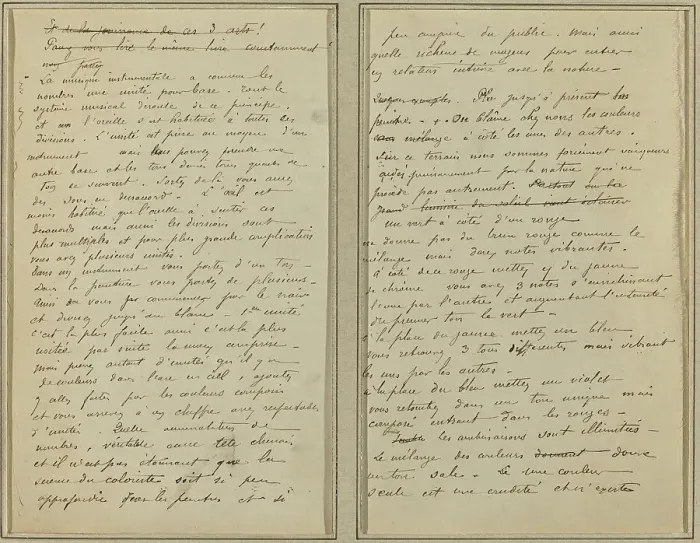 Et de la jouissance de ces 3 arts!
vous lire le même livre constamment
La musique instrumentale a comme les
nombres une unité pour base. Tout le
système musical découle de ce principe.
et l'oreille s'est habituée à toutes ces
divisions. L'unité est prise au moyen d'un
instrument mais vous pouvez prendre une
autre base et les tons demi tons quarts de
ton se suivent. Sortez de là vous avez
des L'œil est
moins habitué que l'oreille à sentir ces
désaccords mais aussi les divisions sont
plus multiples et pour plus grande complication
vous avez plusieurs unités.
Dans un instrument vous partez d'un ton -
Dans la peinture vous partez de plusieurs -
Ainsi vous commencez par le noir
et divisez jusqu'au blanc - unité
c'est la plus facile aussi c'est la plus
usitée par suite la mieux comprise -
Mais prenez autant d'unités qu'il y a
de couleurs dans l'arc en ciel ajoutez
y celles faites par les couleurs composées
et vous arrivez à un chiffre assez respectable
d'unités. Quelle accumulation de
nombres, véritable casse tête chinois
et il n'est pas étonnant que la
science du coloriste soit si peu
approfondie par les peintres et si
peu comprise du public. Mais aussi
quelle richesse de moyens pour entrer
en relation intime avec la nature -
jusqu'à présent
On blâme chez nous les couleurs
sans mélange à côté les unes des autres.
Sur ce terrain nous sommes forcément vainqueurs
aidés puissamment par la nature qui ne
procède pas autrement.
un vert à côté d'un rouge
ne donne pas du brun rouge comme le
mélange mais deux notes vibrantes.
à côté de ce rouge mettez y du jaune
de chrome vous avez 3 notes s'enrichissant
l'une par l'autre et augmentant l'intensité
du premier ton le vert -
à la place du jaune mettez un bleu
vous retrouvez 3 tons différents mais vibrant
les uns par les autres -
à la place du bleu mettez un violet
vous retombez dans un ton unique mais
composé entrant dans les rouges -
Les combinaisons sont illimitées -
Le mélange des couleurs donnent donne
un ton sale - une couleur
seule est une crudité